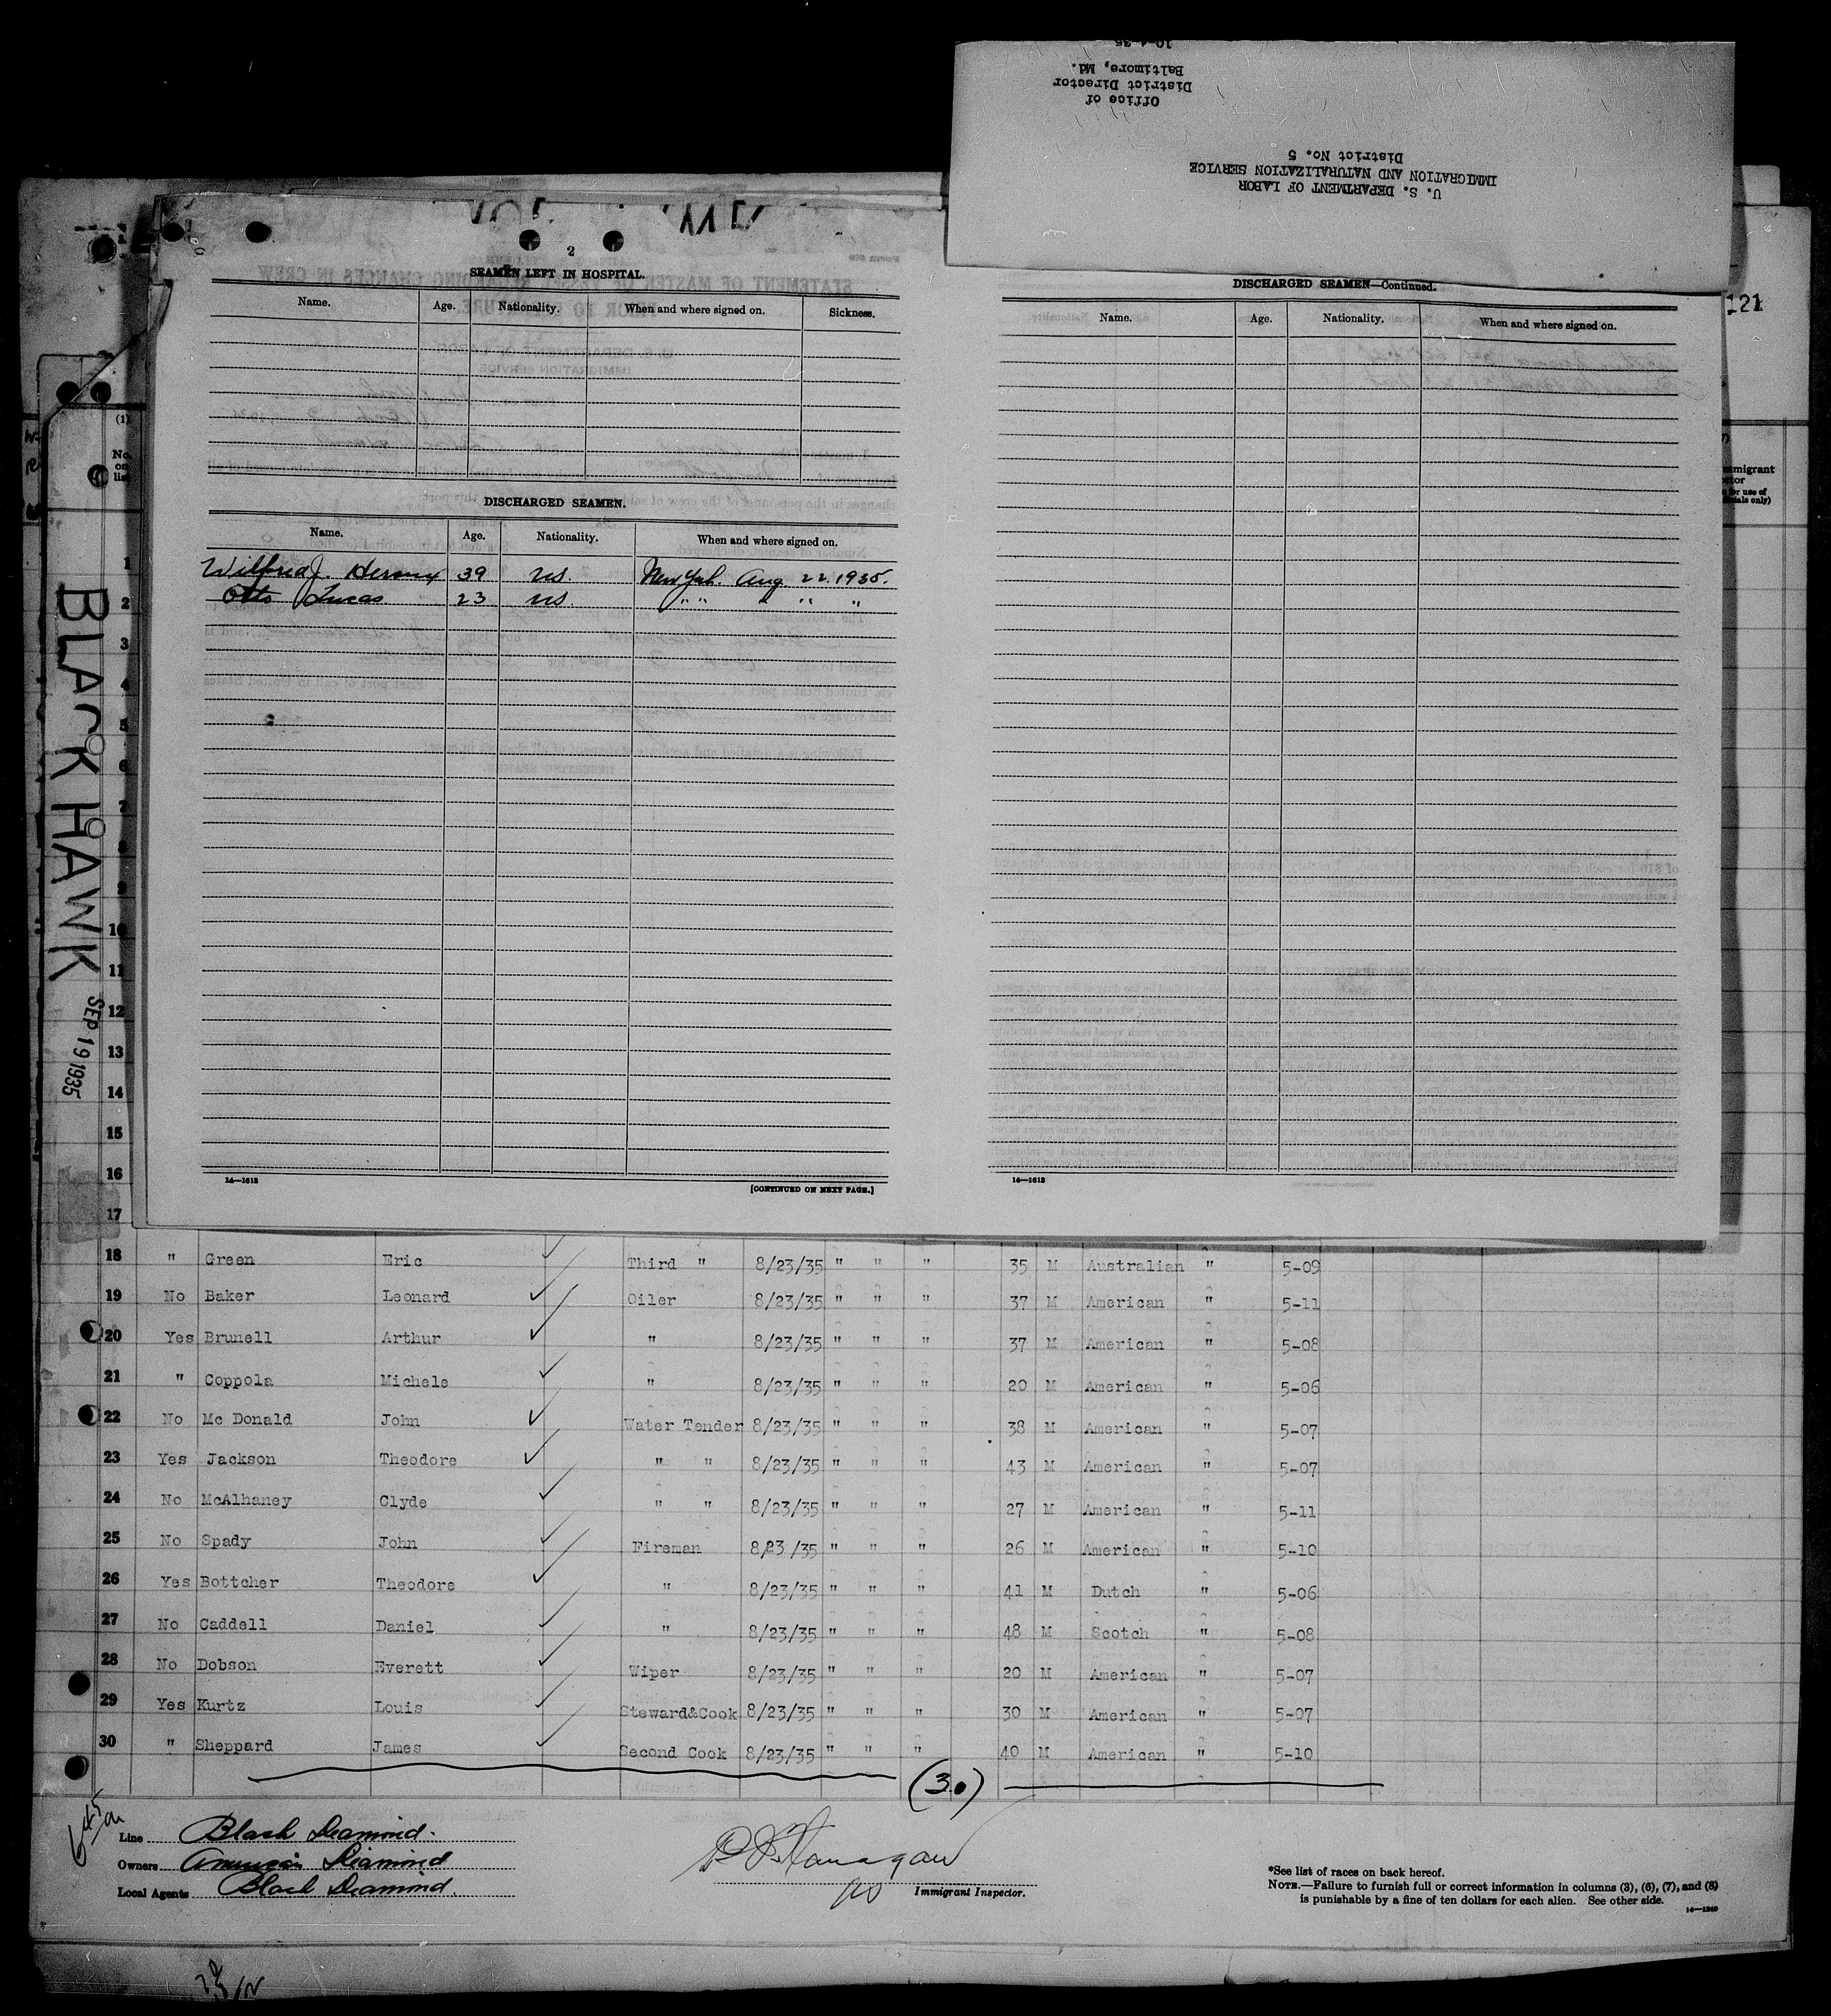 10-4-35
Baltimore, Md.
District Director
Office of
District No. 5
IMMIGRATION AND NATURALIZATION SERVICE
U. S. DEPARTMENT OF LABOR
2
SEAMEN LEFT IN HOSPITAL.
Name. Age. Nationality. When and where signed on. Sickness.
DISCHARGED SEAMEN.
Name. Age. Nationality. When and where signed on.
Wilfred J. 39 US. New York Aug 22. 1935.
Otto Lucas 23 US. " " " " "
14—1613
[CONTINUED ON NEXT PAGE.]
DISCHARGED SEAMEN—Continued.
Name. Age. Nationality. When and where signed on.
14—1613
121
BLACK HAWK
SEP 19 1935
(1)
No. on list
1
2
3
4
5
6
7
8
9
10
11
12
13
14
15
16
17
18 " Green Eric Third " 8/23/35 " " " 35 M Australian " 5-09
19 No Baker Leonard Oiler 8/23/35 " " " 37 M American " 5-11
20 Yes Brunell Arthur " 8/23/35 " " " 37 M American " 5-08
21 " Coppola Michele " 8/23/35 " " " 20 M American " 5-06
22 No Mc Donald John Water Tender 8/23/35 " " " 38 M American " 5-07
23 Yes Jackson Theodore " " 8/23/35 " " " 43 M American " 5-07
24 No McAlhaney Clyde " " 8/23/35 " " " 27 M American " 5-11
25 No Spady John Fireman 8/23/35 " " " 26 M American " 5-10
26 Yes Bottcher Theodore " 8/23/35 " " " 41 M Dutch " 5-06
27 No Caddell Daniel " 8/23/35 " " " 48 M Scotch " 5-08
28 No Dobson Everett Wiper 8/23/35 " " " 20 M American " 5-07
29 Yes Kurtz Louis Steward&Cook 8/23/35 " " " 30 M American " 5-07
30 " Sheppard James Second Cook 8/23/35 " " " 40 M American " 5-10
(30)
Line Black Diamond.
Owners American Diamond
Local Agents Black Diamond.
Immigrant Inspector.
*See list of races on back hereof.
NOTE.—Failure to furnish full or correct information in columns (3), (6), (7), and (8)
is punishable by a fine of ten dollars for each alien. See other side.
14—1240